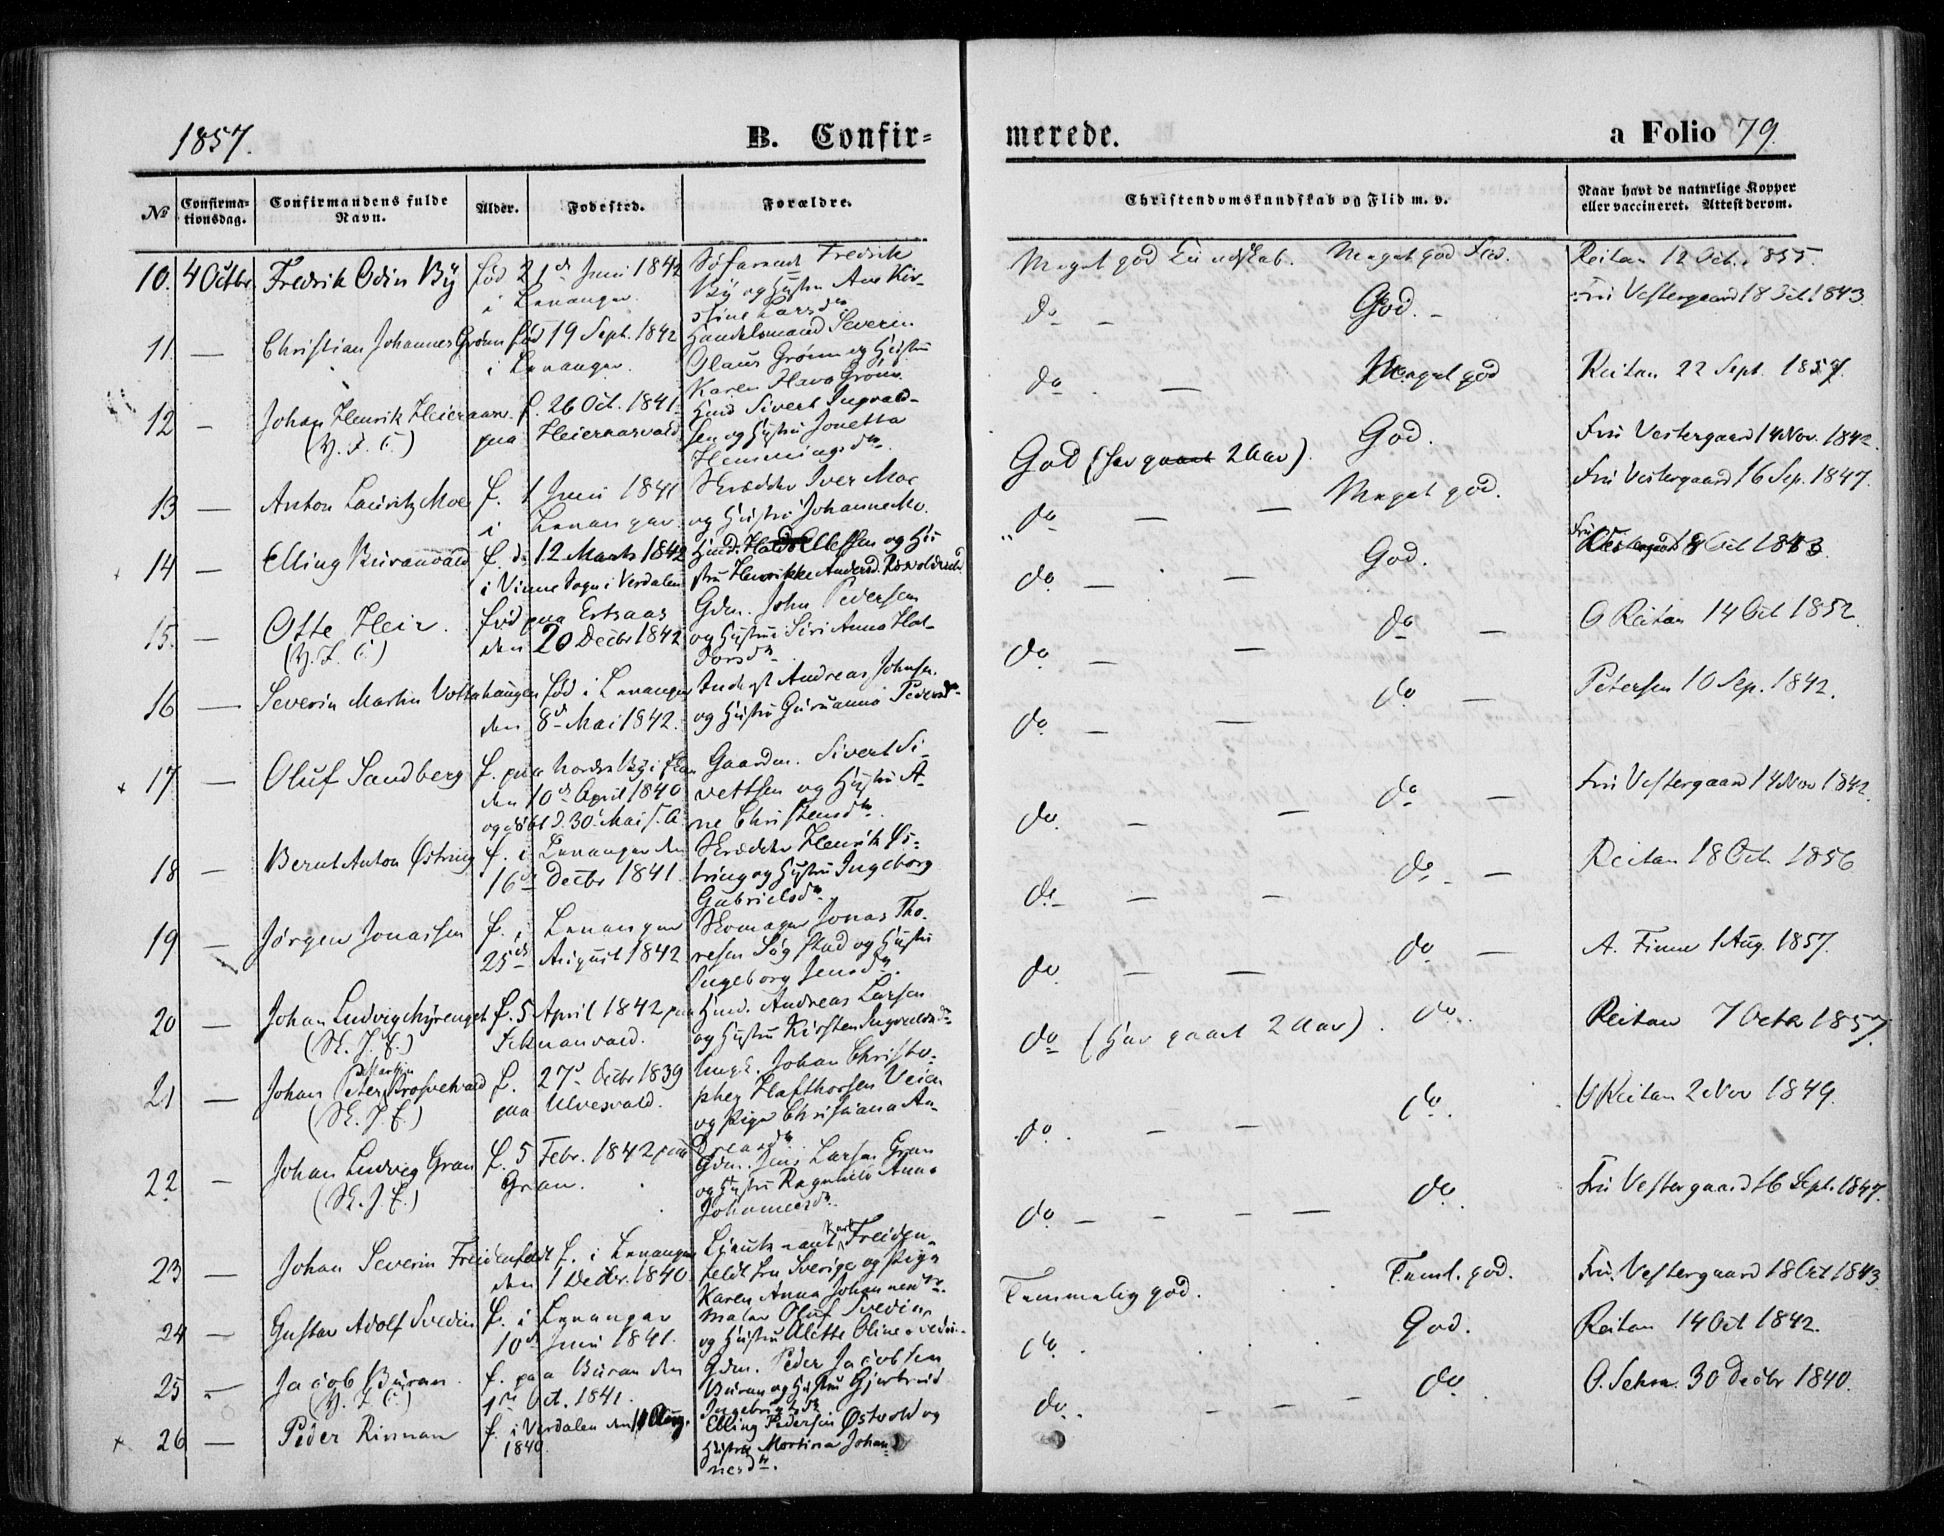 1857.
B. Confir=
merede.
a Folio 79.
No
Confirma-
tionsdag.
Confirmandens fulde
Navn.
Alder.
Fodested.
Forældre.
Christendomskundskab og Flid m. v.
Naar havt de naturlige Kopper
eller vaccineret. Attest derom.
10. 4 Octbr Fredrik Odin By
fød 21de Juni 1842
i Levanger.
Fredrik
By og Hustru Ane Kir-
stine Larsdtr
Meget god Kundskab. Meget god Flid.
Reitan 12 Oct. 1855.
11. — Christian Johannes Grønn
fød 19 Sept. 1842
i Levanger.
Handelsmand Severin
Olaus Grønn og Hustru
Karen Grønn
do — God. -
Fru Vestergaard 18 Oct. 1843
12 - Johan Henrik Heieraasv.
(Y. L. C.)
f. 26 Oct. 1841.
paa Heieraasvald
Hmd Sivert Ingvald-
sen og Hustru Jonetta
Hemmingsdtr.
do. — Meget god
Reitan 22 Sept. 1857.
13 — Anton Lauritz Moe
f. 1 Juni 1841
i Levanger
Skrædder Iver Moe
og Hustru Johanne Mo.
God (har gaaet 2 Aar). God.
Fru Vestergaard 14 Nov. 1842.
14 — Elling Buranvald
f. d. 12 Marts 1842
i Vinne Sogn i Verdalen
Hmd. Ellefsen og Hu
stru Henrikke Andersd.
do — — Meget god.
Fru Vestergaard 16 Sep. 1847.
15. — Otte Heir.
(Y. L. C.)
fød paa Ertsaas
den 20 Decbr 1842
Gdm. John Pedersen
og Hustru Siri Anna Hal-
dorsdtr
do — — God.
Fru Vestergaard 8 Oct 1843.
16 — Severin Martin Voldhaugen
fød i Levanger
den 8de Mai 1842.
Andreas Johnsen
og Hustru Guruanna Pedersdtr
do — — do —
O Reitan 14 Oct 1852.
17 — Oluf Sandberg
f. paa Nordre By i
den 10de April 1840
og døbt d. 30 Mai s. A.
Gaardm. Sivert Si-
vertsen og Hustru A-
ne Christensdtr
do — — do —
Petersen 10 Sep. 1842.
18 — Bernt Anton Østring
f. i Levanger den
16de Decbr 1841.
Skrædder Henrik Øs-
tring og Hustru Ingeborg
Gabrielsdtr
do. — — do —
Fru Vestergaard 14 Nov 1842.
19 — Jørgen Jonassen
f. i Levanger
25de August 1842
Skomager Jonas Tho-
resen Søgstad og Hustru
Ingeborg Jensdtr.
do — — do. - —
Reitan 18 Oct. 1856
20 — Johan Ludvig Myrenget
(Sk. J. C.)
f. 5 April 1842 paa
Hmd. Andreas Larsen
og Hustru Kirsten Ingvaldsdtr
do — — do —
A. Finne 1 Aug. 1857.
21 — Johan Peter Martin
(Sk. J. C.)
f. 27de Octbr 1839
paa Ulvesvald.
Ungk. Johan Christo-
pher Hafthorsen Veien
og Pige Christiana An-
dreasdtr
do (har gaaet 2 Aar). do.
Reitan 7 Octbr 1857.
22 — Johan Ludvig Gran
(Sk. J. C.)
f. 5 Febr. 1842 paa
Gran.
Gdm. Jens Larsen Gran
og Hustru Ragnhild Anna
Johannesdtr
do. — — do.
O Reitan 2 Nov 1849.
23 — Johan Severin Freidenfeldt
f. i Levanger
den 1 Decbr. 1840.
Lieutenant Karl Freiden-
feldt fra Sverige og Pige
Karen Anna Johannesdtr.
do — — — — do.
Fru Vestergaard 16 Sept. 1847.
24 — Gustav Adolf Svedin
f. i Levanger
10de Juni 1841.
Maler Oluf Svedin
og Hustru Alette Oline Svedin.
Temmelig god. Teml. god.
Fru. Vestergaard 18 Oct 1843
25 — Jacob Buran
(Y. L. C.)
f. paa Buran den
1ste Oct. 1841.
Gdm. Peder Jacobsen
Buran og Hustru Gjertrud
Ingebrigtsdtr
do. God.
Reitan 14 Oct 1842.
26 — Peder Rinnan
f. i Verdalen den 11 Aug.
1840.
Elling Pedersen Østvold og
Hustru Martina Johan-
nesdtr.
do. - — do.
O. Sehm. 30 Decbr 1840.